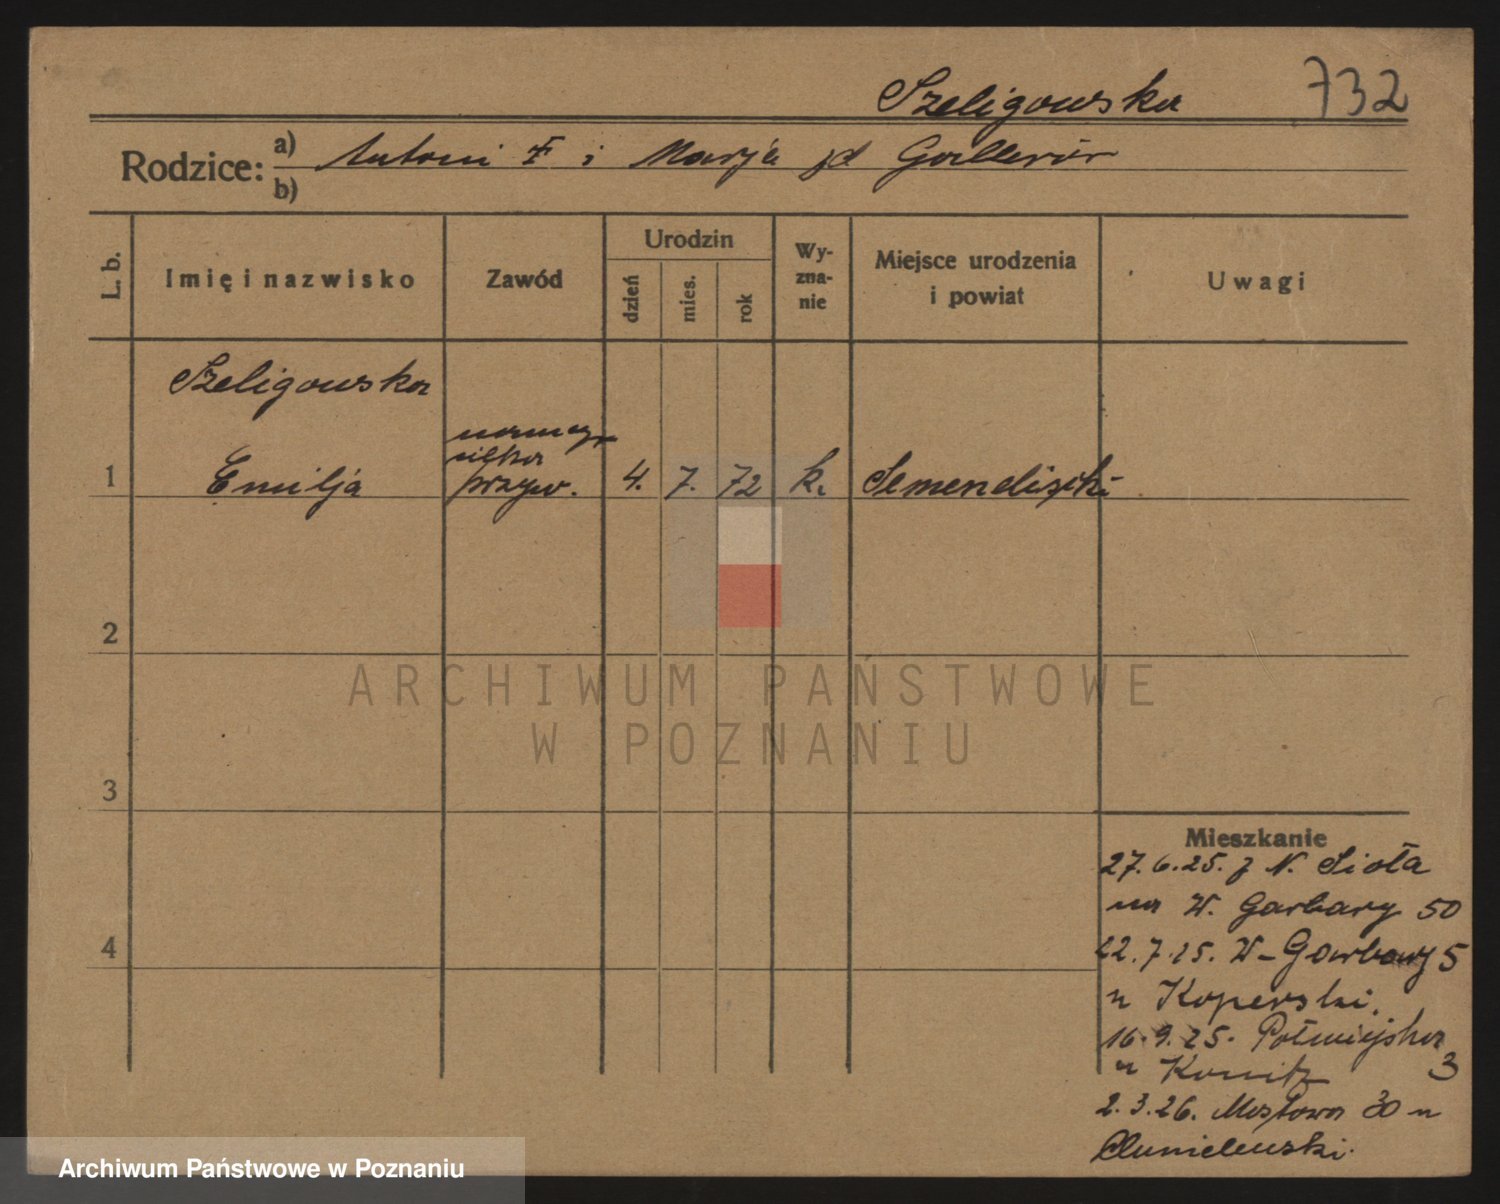 Szeligowska 732
Rodzice: a) Antoni i Marja zd Gallerów
b)
L. b. Imię i nazwisko Zawód Urodzin dzień mies. rok Wy-zna-nie Miejsce urodzenia i powiat Uwagi
Szeligowska
nauczy
cielka
1 Emilja pryw. 4. 7. 72 k.
2
3
4
Mieszkanie
27.6.25. z N. Sioła
na W. Garbary 50
22.7.25. W-Garbary 5
u Koperski.
16.9.25. Półwiejska
u 3
2.3.26. Mostowa 30 u
Chmielewski.
ARCHIWUM PAŃSTWOWE
W POZNANIU
Archiwum Państwowe w Poznaniu